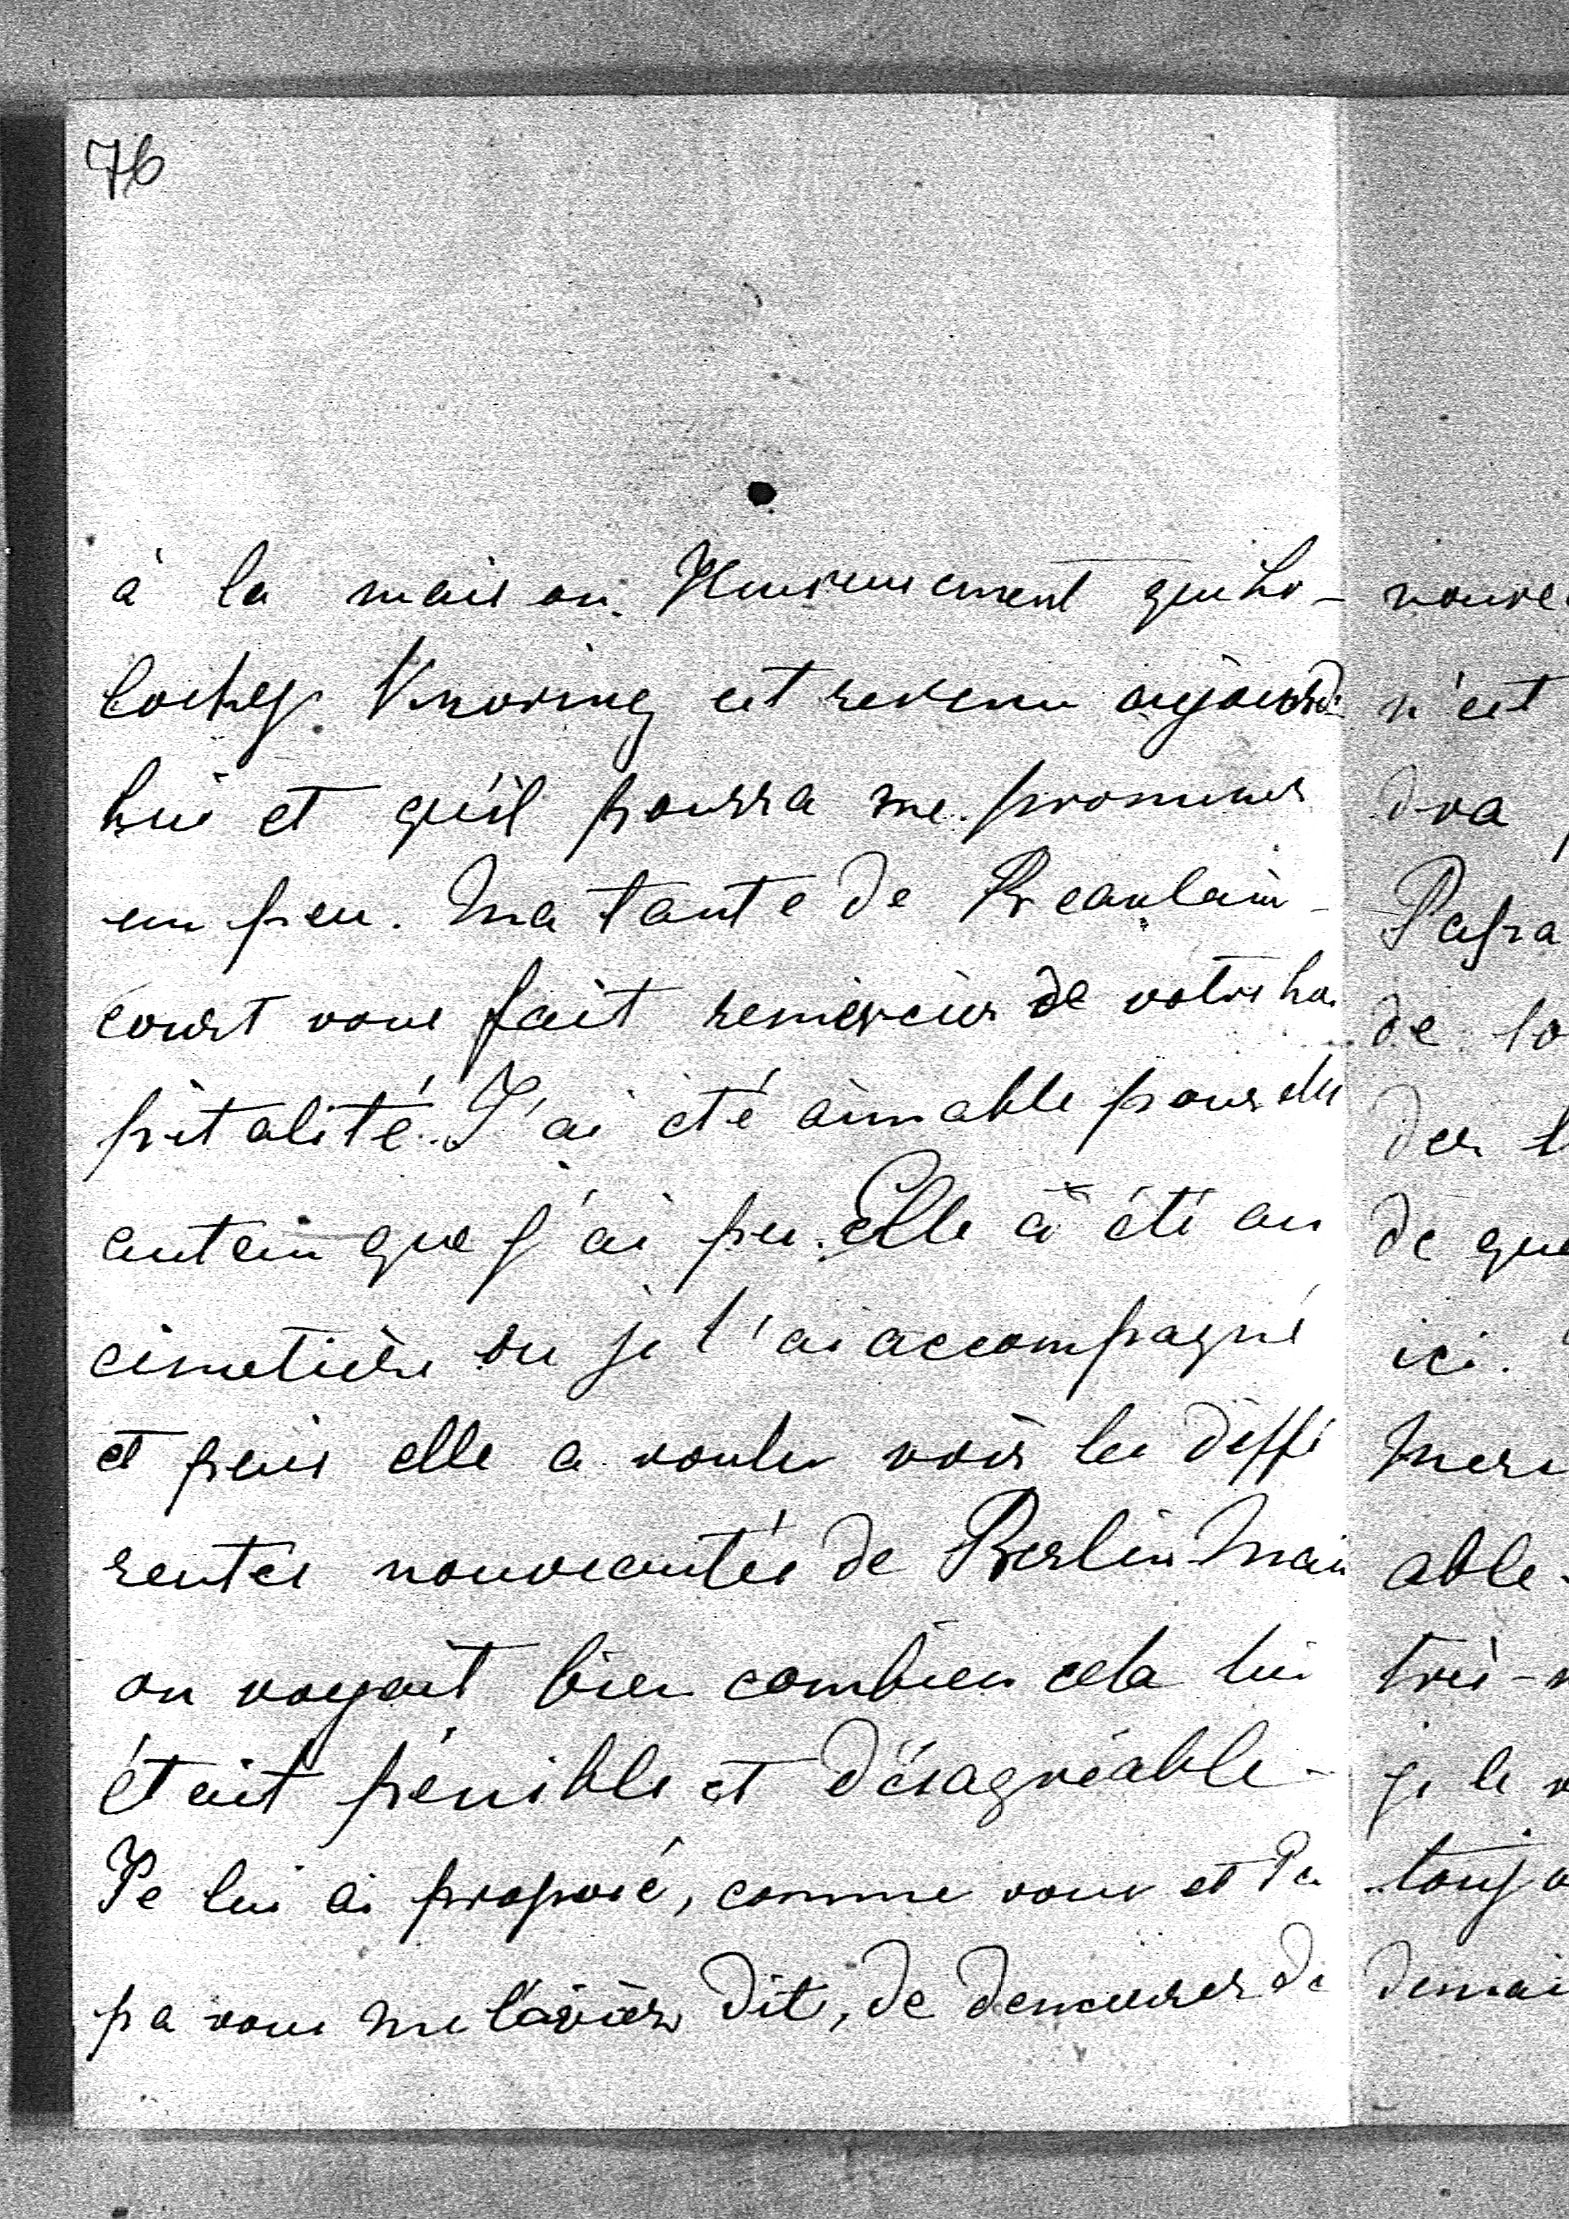 76
à la maison. Heureusement que
Knoring est revenu aujourd'
hui et qu'il pourra me promener
un peu. Ma tante de Beaulain-
court vous fait remercier de votre hos
pitalité. J'ai été aimable pour elle
autain que j'ai pu. Elle a été au
cimetière ou je l'ai accompagné
et puis elle a voulu voir les diffé
rentes nouveautés de Berlin Mais
on voyait bien combien cela lui
était pénible et désagréable-
Je lui ai proposé, comme vous et Pa
pa vous me l'aviez dit, de demeurer de
n'est
dra
Papa
de
de que
ici.
able-
très-
je le
toujo
demai